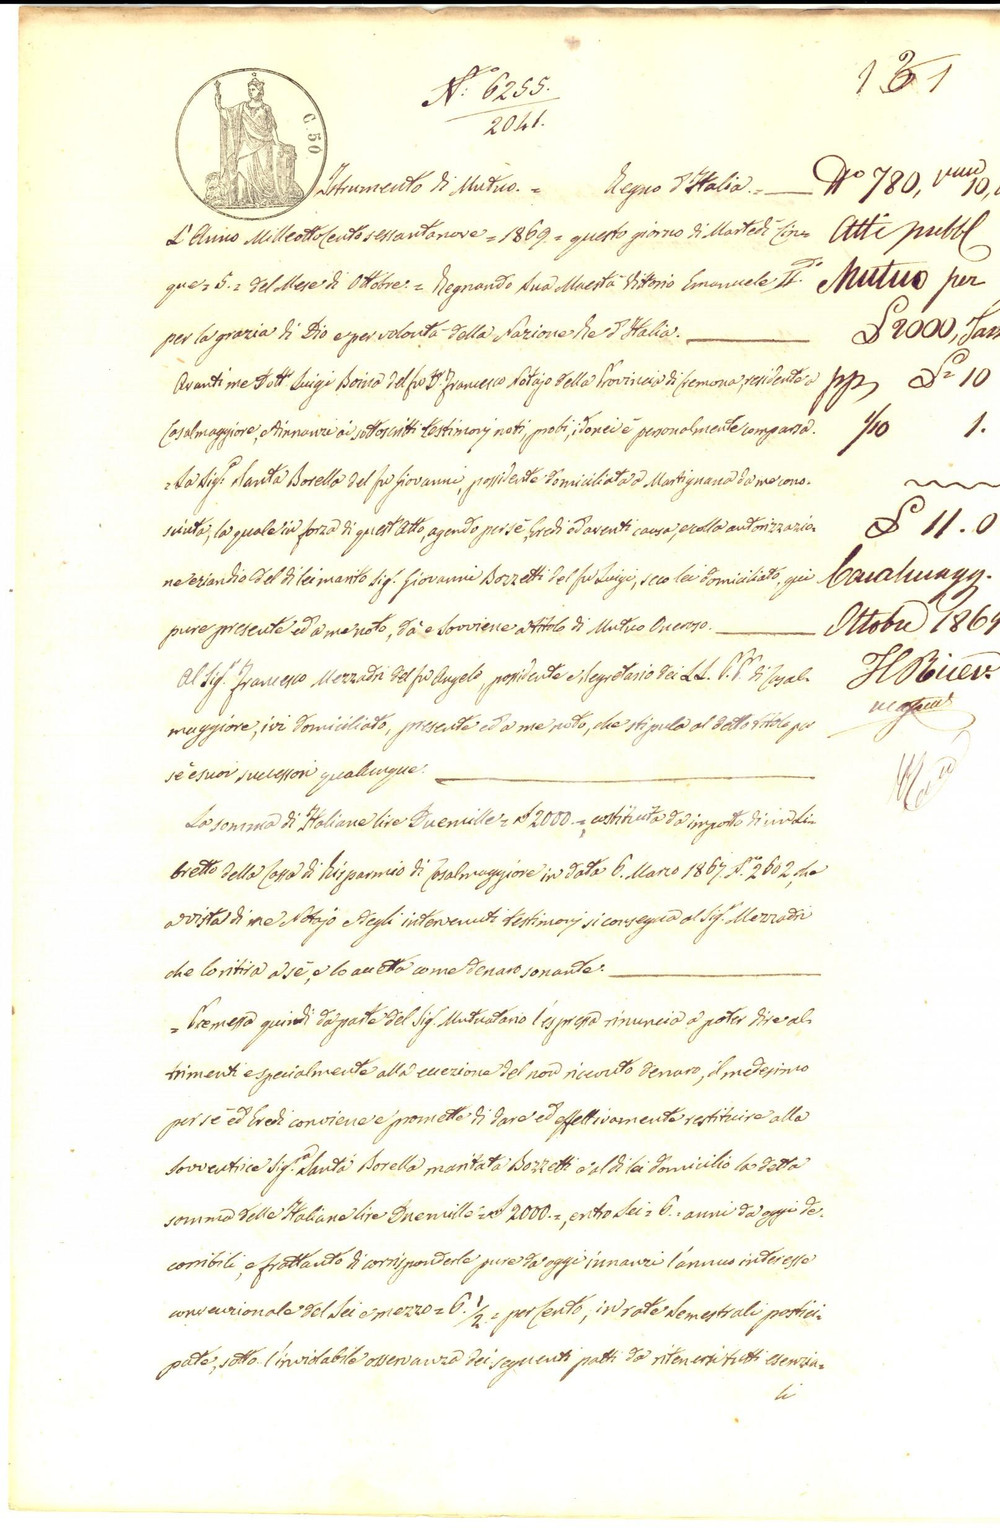 N.° 6255.
2041.
131
C. 50
Istrumento di Mutuo. = Regno d'Italia. =
L'Anno Milleottocentosessantanove = 1869. = questo giorno di Martedì Cin=
que = 5. = del Mese di Ottobre. = Regnando Sua Maestà Vittorio Emanuele II.do
per la grazia di Dio e per volontà della Nazione Re d'Italia.
Avanti me Dott. Luigi Boina del fu Dr. Francesco Notajo della Provincia di Cremona, residente a
Casalmaggiore, ed innanzi ai sottoscritti testimonj noti, probi, idonei è personalmente comparsa.
= La Sig.ra Santa Borella del fu Giovanni, possidente domiciliata a Martignana da me cono=
sciuta, la quale in forza di quest'Atto, agendo per sè, Eredi ed aventi causa, e colla autorizzazio=
ne eziandio del di lei marito Sig.r Giovanni Bozzetti del fu Luigi, seco lei domiciliato, qui
pure presente ed a me noto, dà e sovviene a titolo di Mutuo Oneroso.
Al Sig.r Francesco Mezzadri del fu Angelo, possidente e Segretario dei LL. PP. di Casal=
maggiore, ivi domiciliato, presente ed a me noto, che stipula al detto titolo per
sè e suoi successori qualunque.
La somma di Italiane lire Duemille = £ 2000. =, costituita da importo di un Li=
bretto della Cassa di Risparmio di Casalmaggiore in data 6. Marzo 1867. N.° 2602, che
a vista di me Notajo e degli intervenuti testimonj si consegna al Sig.r Mezzadri
che lo ritira a sè, e lo accetta come denaro sonante.
= Premessa quindi da parte del Sig.r Mutuatario l'espressa rinuncia a poter dire al=
trimenti e specialmente alla eccezione del non ricevuto denaro, il medesimo
per sè ed Eredi conviene e promette di dare ed effettivamente restituire alla
sovventrice Sig.ra Santa Borella maritata Bozzetti e al di lei domicilio la detta
somma delle Italiane lire Duemille = £ 2000. =, entro Sei = 6. = anni da oggi de=
corribili, e frattanto di corrisponderle pure da oggi innanzi l'annuo interesse
convenzionale del Sei e mezzo = 6. 1/2 = per Cento, in rate semestrali postici=
pate, sotto l'inviolabile osservanza dei seguenti patti da ritenersi tutti essenzia=
li
N.o 780,
10,
Atti pubbl
Mutuo per
£ 2000, Tass
pp, £ 10
1/10 1.
£ 11.0
Casalmagg.
Ottobre 1869
Il Ricev.